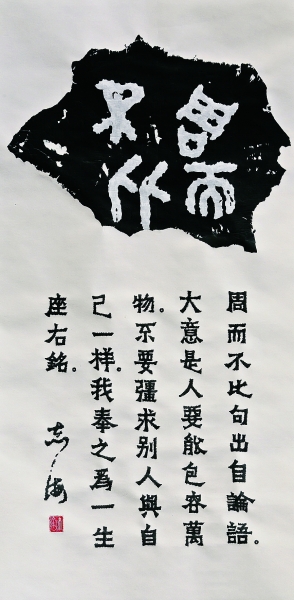 周而
不比
周而不比句出自論語。
大意是人要能包容萬
物。不要彊求别人與自
己一樣。我奉之為一生
座右銘。
志海